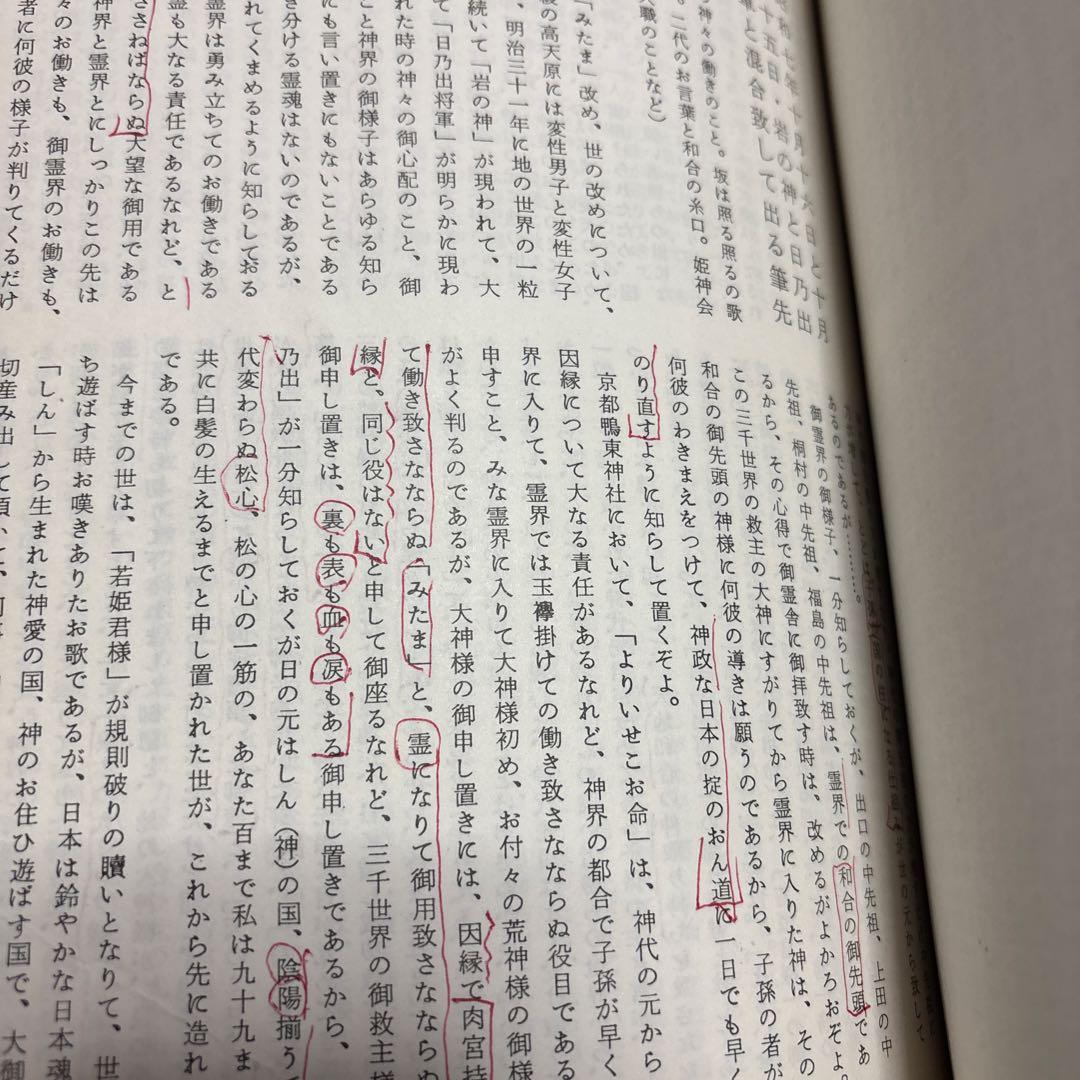 昭和七年十月十六日と十月
十五日・岩の神と日乃出
と混合致して出る筆先
神々の働きのこと。坂は照る照るの歌
。二代のお言葉と和合の糸口。姫神会
職のことなど)
「みたま」改め、世の改めについて、
の高天原には変性男子と変性女子
、明治三十一年に地の世界の一粒
続いて「岩の神」が現われて、大
て「日乃出将軍」が明らかに現わ
れた時の神々の御心配のこと、御
こと神界の御様子はあらゆる知ら
にも言い置きにもないことである
き分ける霊魂はないのであるが、
れてくまめるように知らしてお
霊界は勇み立ちてのお働きである
霊も大なる責任であるなれど、と
さねばならぬ大望な御用である
神界と霊界とにしっかりこの先は
々のお働きも、御霊界のお働きも、
者に何彼の様子が判りてくるだけ
あるのであるが……。
御霊界の御様子、一分知らしておくが、出口の中先祖、上田の中
先祖、桐村の中先祖、福島の中先祖は、霊界での和合の御先頭であ
るから、その心得で御霊舎に御拝致す時は、改めるがよかろおぞよ。
この三千世界の救主の大神にすがりてから霊界に入りた神は、その
和合の御先頭の神様に何彼の導きは願うのであるから、子孫の者が
何彼のわきまえをつけて、神政な日本の掟のおん道に一日でも早く
のり直すように知らして置くぞよ。
京都鴨東神社において、「よりいせこお命」は、神代の元から
因縁について大なる責任があるなれど、神界の都合で子孫が早く
界に入りて、霊界では玉襷掛けての働き致さなならぬ役目である
申すこと、みな霊界に入りて大神様初め、お付々の荒神様の御様
がよく判るのであるが、大神様の御申し置きには、因縁で肉宮持
て働き致さなならぬ「みたま」と、霊になりて御用致さなならぬ
縁と、同じ役はないと申して御座るなれど、三千世界の御救主様
御申し置きは、裏も表も血も涙もある御申し置きであるから、
乃出」が一分知らしておくが日の元はしん(神)の国、陰陽揃う
代変わらぬ松心、松の心の一筋の、あなた百まで私は九十九ま
共に白髪の生えるまでと申し置かれた世が、これから先に造れ
である。
今までの世は、「若姫君様」が規則破りの贖いとなりて、世
ち遊ばす時お嘆きありたお歌であるが、日本は鈴やかな日本魂
「しん」から生まれた神愛の国、神のお住ひ遊ばす国で、大御
切産み出して頂いて、